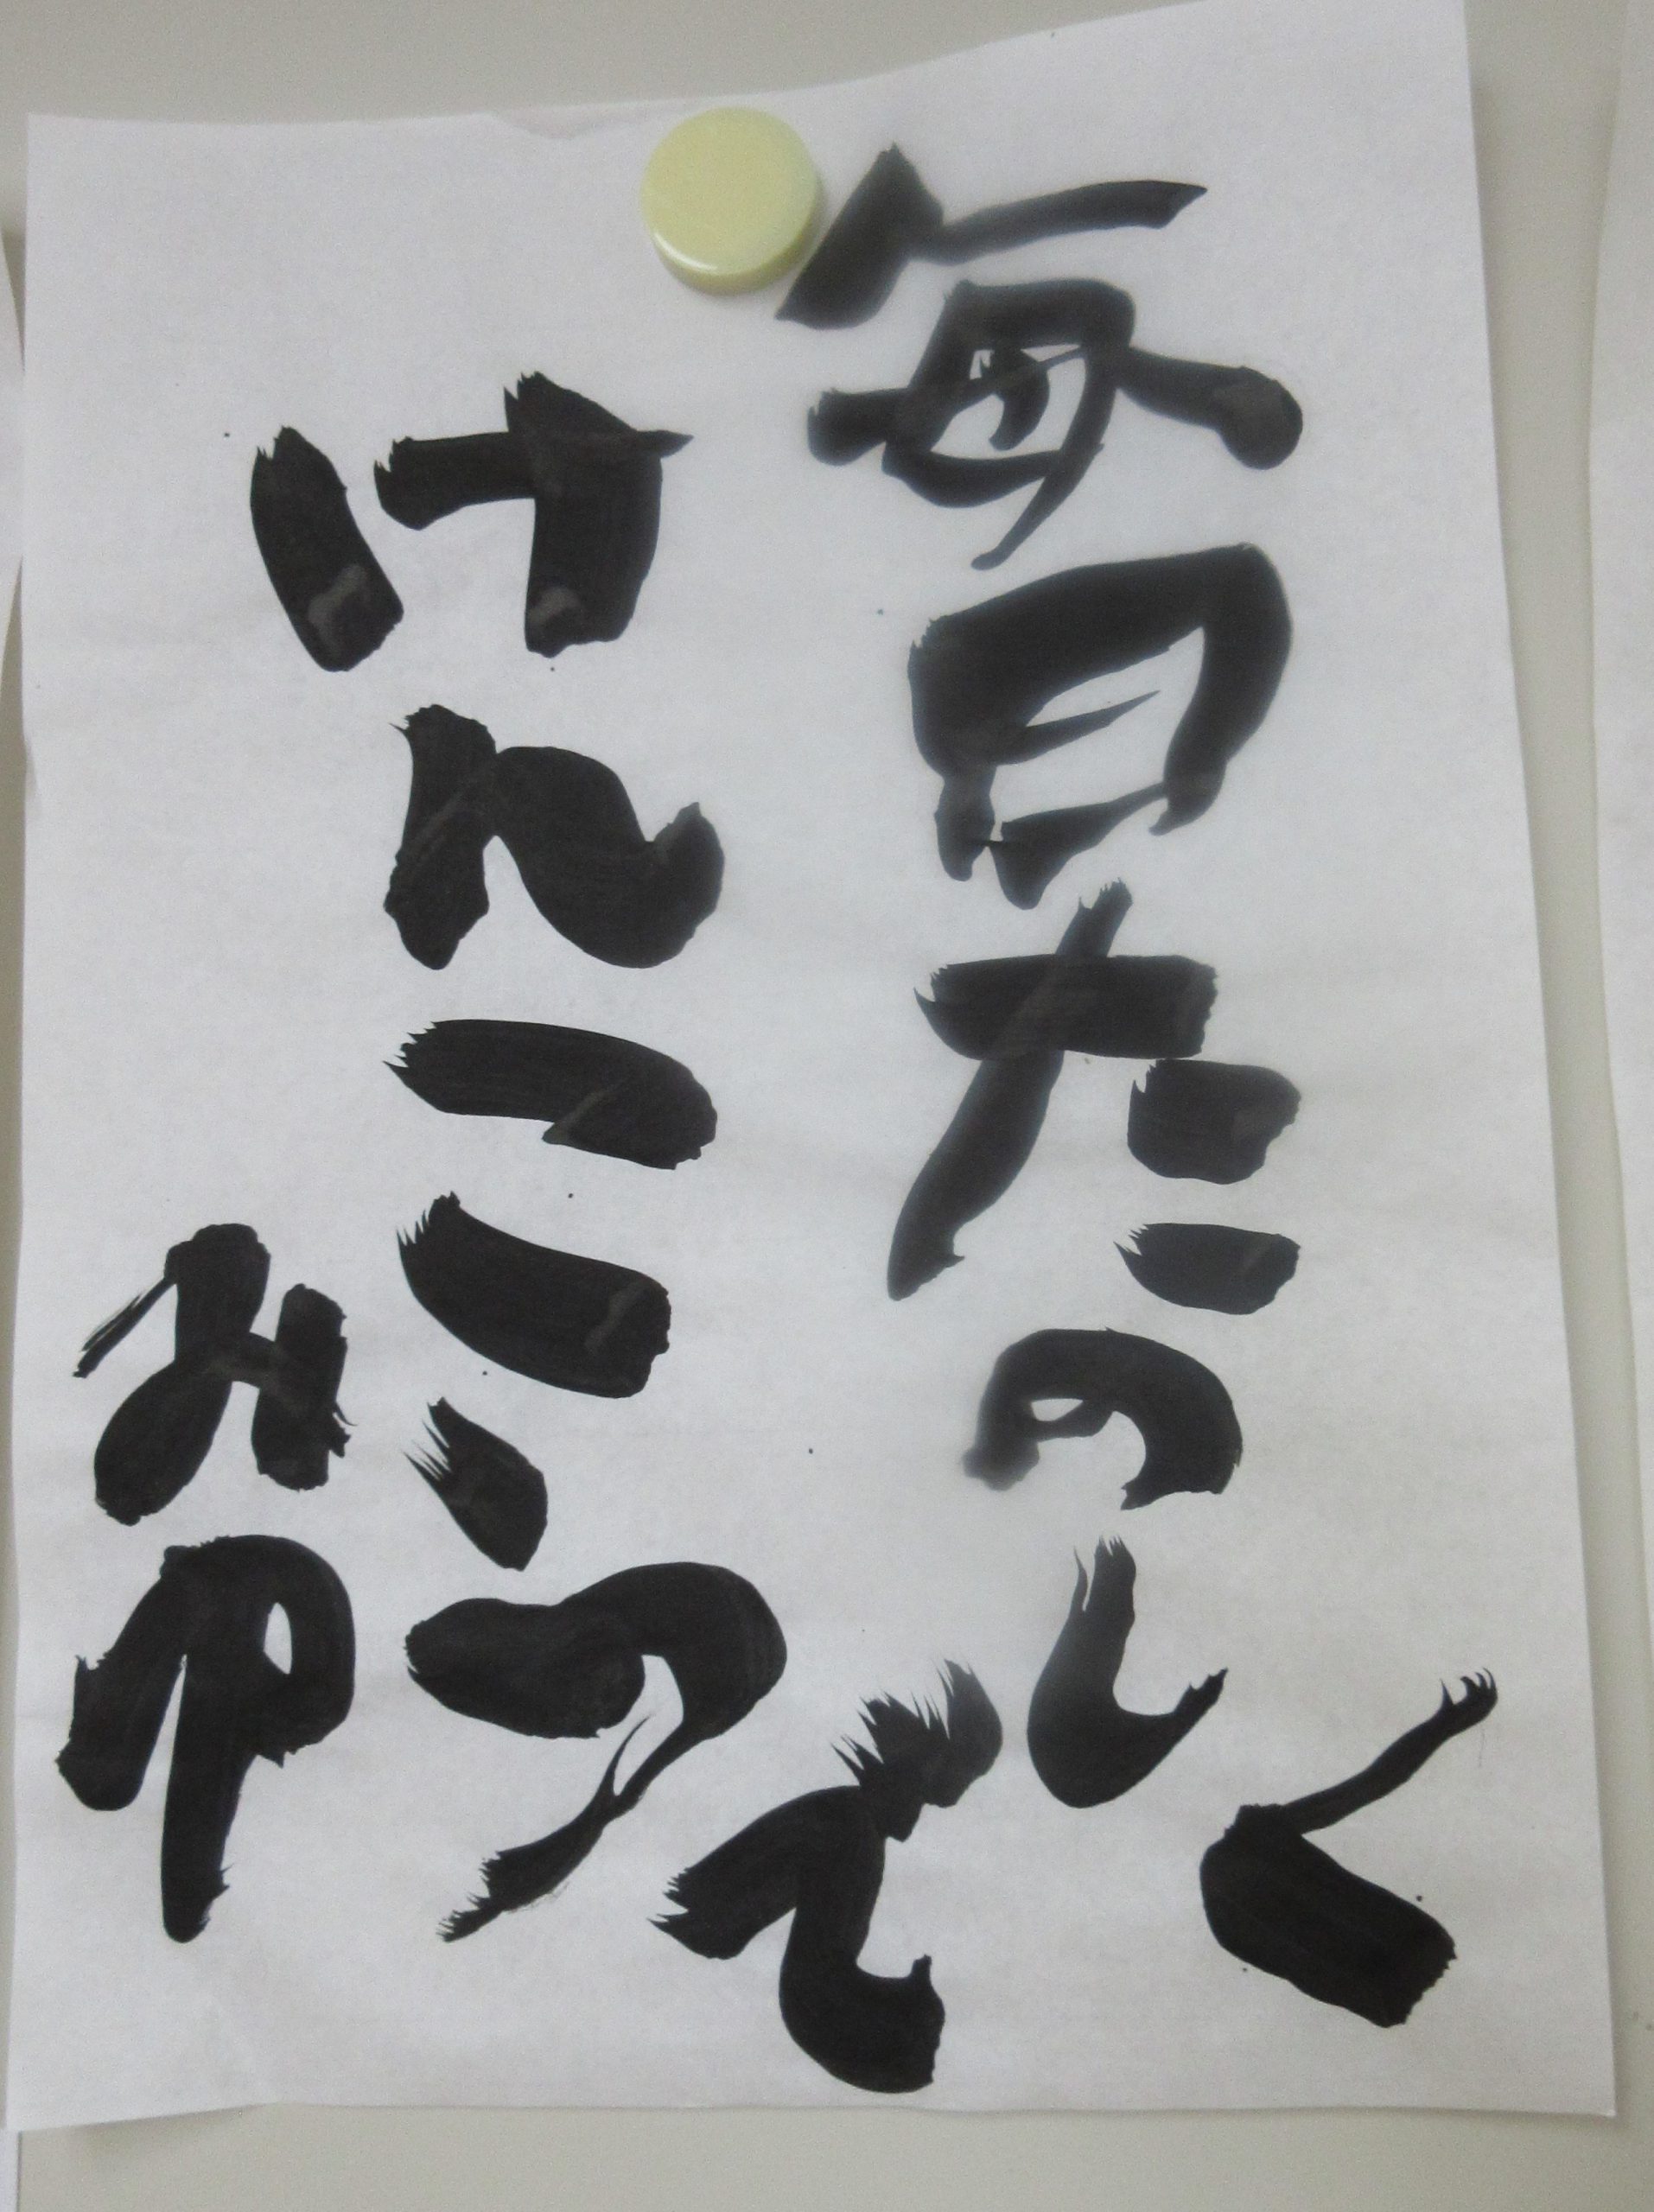 毎日たのしく
けんこうで
みゆ